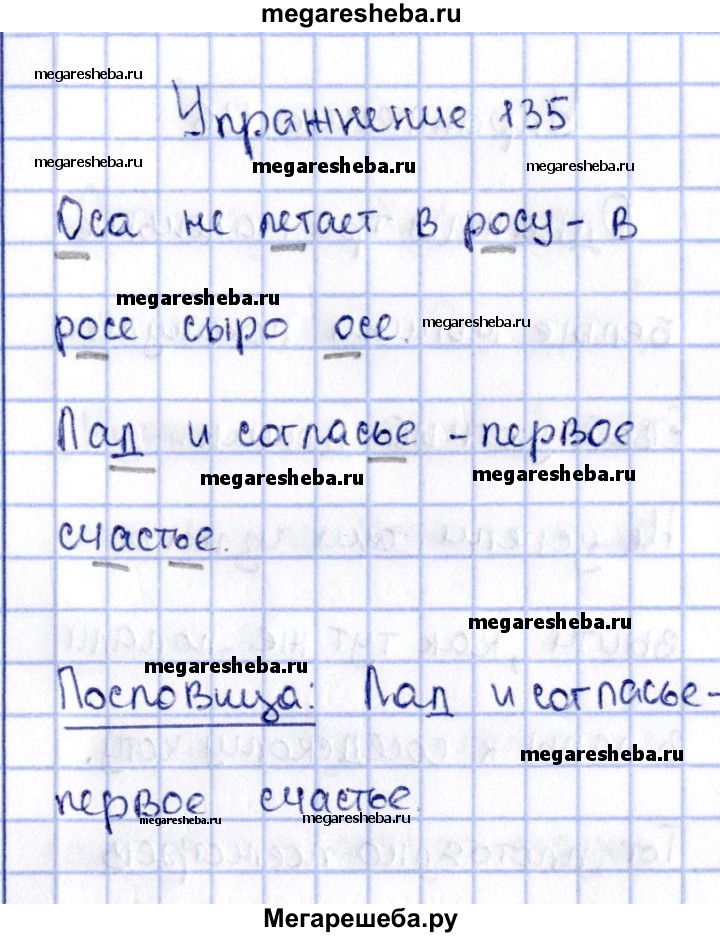 megaresheba.ru
megaresheba.ru
Упражнение 135
megaresheba.ru megaresheba.ru megaresheba.ru
Оса не летает в росу - в
megaresheba.ru
росе сыро осе. megaresheba.ru
Лад и согласье - первое
megaresheba.ru megaresheba.ru
счастье.
megaresheba.ru
megaresheba.ru
Пословица: Лад и согласье -
megaresheba.ru
первое счастье.
megaresheba.ru megaresheba.ru
Мегарешеба.ру